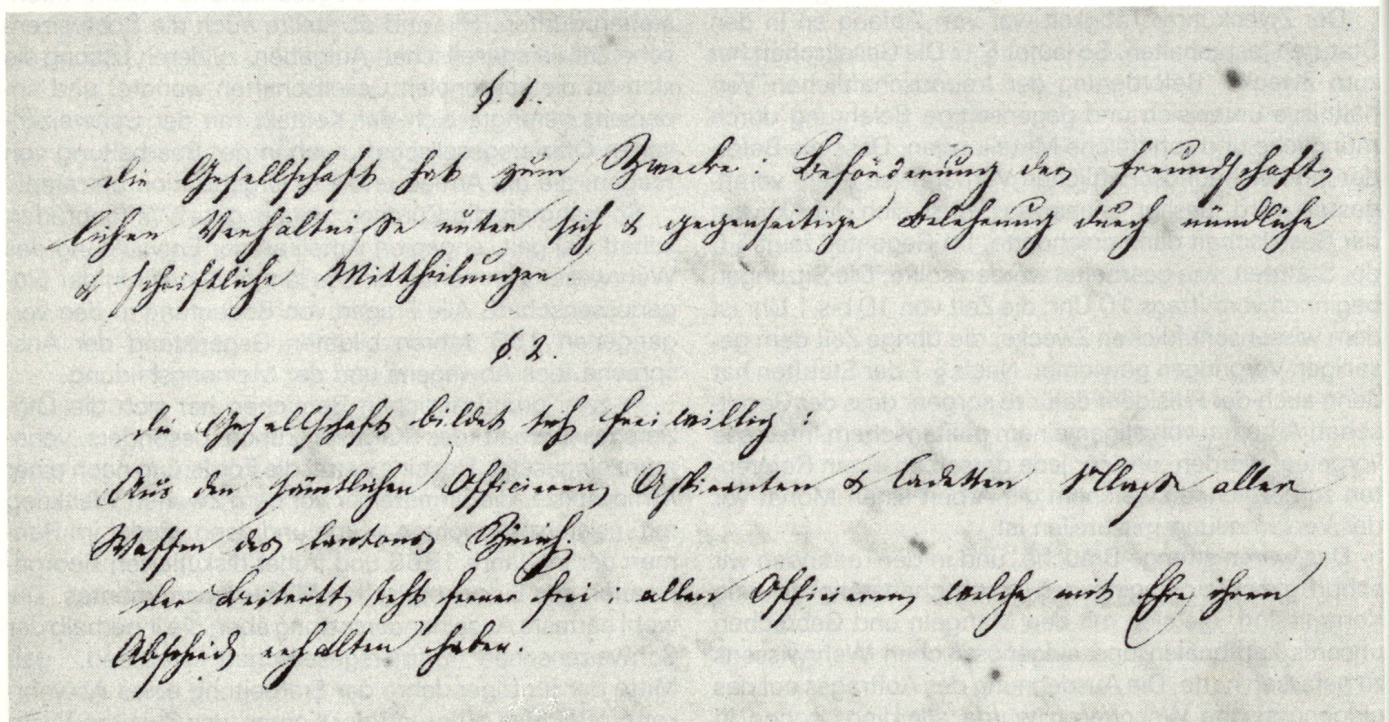 §. 1.
die Gesellschaft hat zum Zwecke: Beförderung der freundschaft-
lichen Verhältniße unter sich & gegenseitige Belehrung durch mündliche
& schriftliche Mittheilungen
§. 2.
die Gesellschaft bildet sich freiwillig:
Aus den sämtlichen Officieren, Aspiranten & Cadetten Claße aller
Waffen des Cantons Zürich.
der Beitritt steht ferner frei: allen Officieren, welche mit Ehre ihren
Abschied erhalten haben.